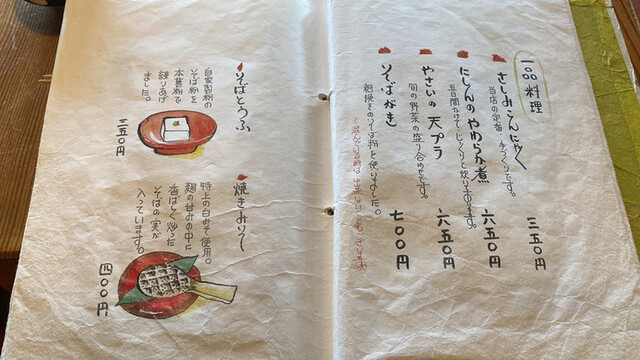 一品料理
さしみこんにゃく
当店の定番・手づくりです。
三五〇円
にしんのやわらか煮
五日間かけてじっくりと炊いております。
六五〇円
やさいの天プラ
旬の野菜の盛り合わせです。
六五〇円
そばがき
粗挽きのそば粉を使いました。
七〇〇円
そばとうふ
自家製粉の
そば粉を
本葛粉で
練りあげ
ました。
三五〇円
焼きみそ
特上の白みそ使用。
麹の甘みの中に
香ばしく炒った
そばの実が
入っています。
四〇〇円